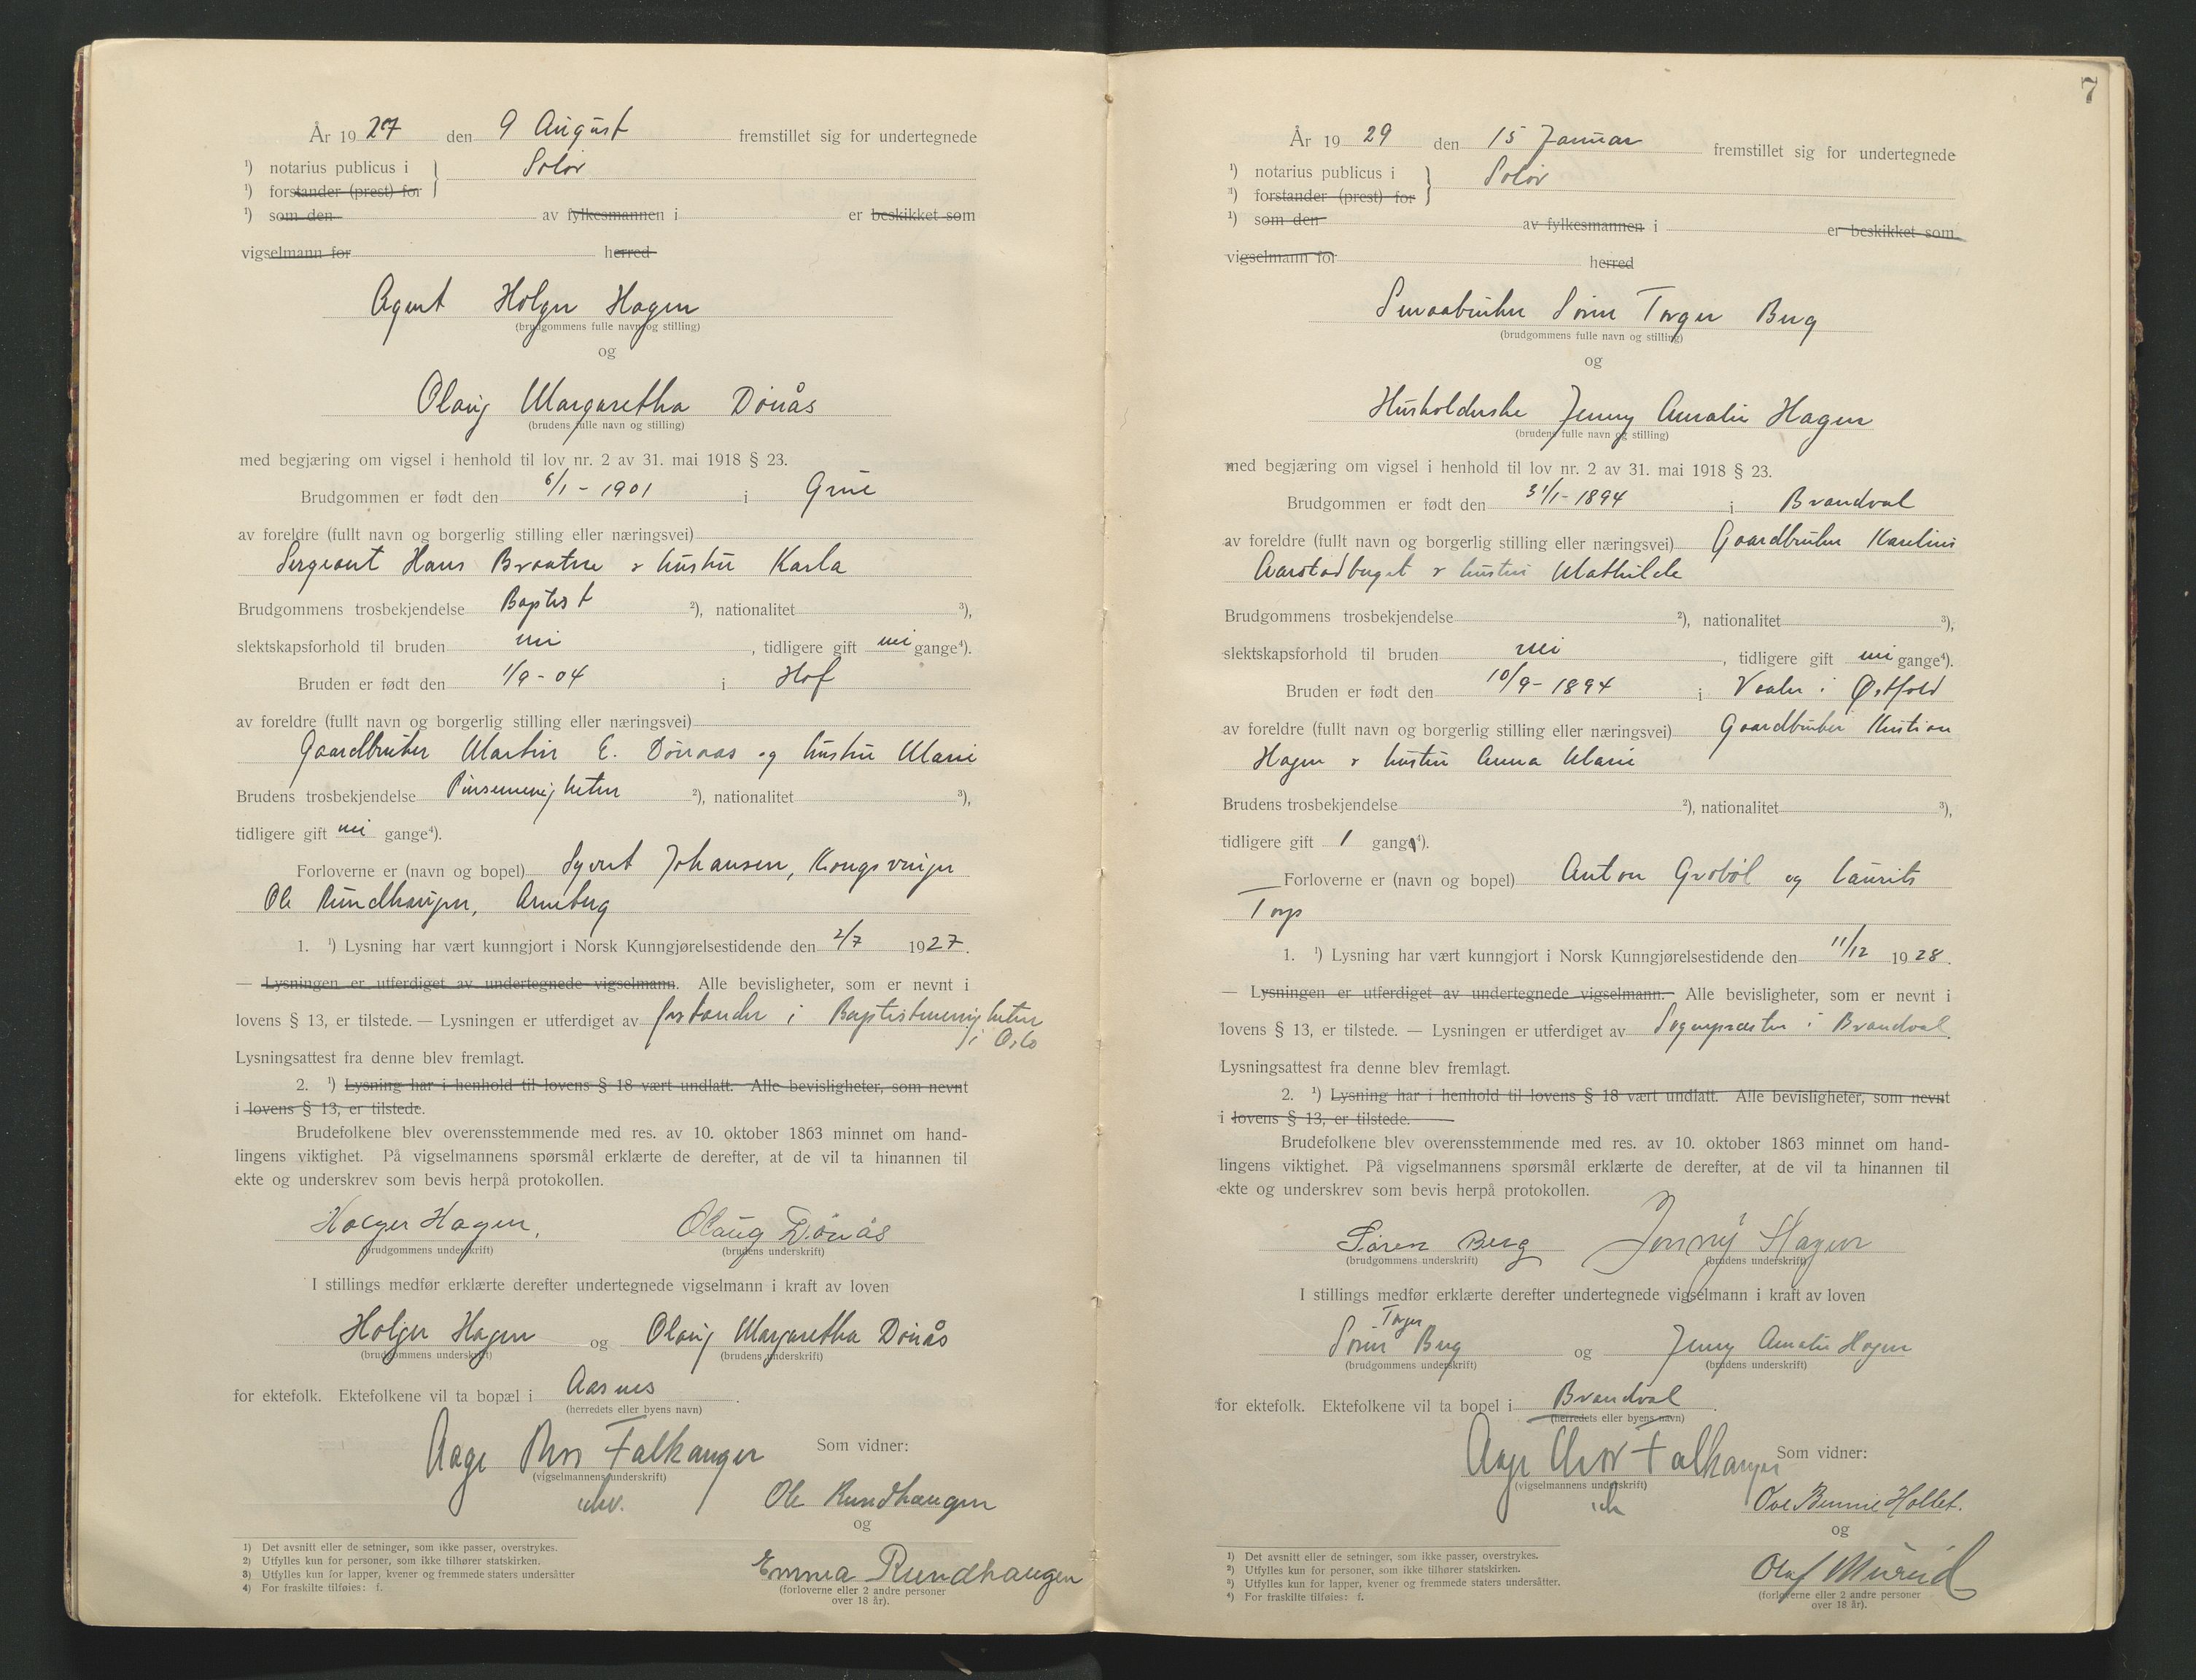 År 19 27 den 9 August fremstillet sig for undertegnede
¹) notarius publicus i
¹) forstander (prest) for } Solør
¹) som den av fylkesmannen i er beskikket som
vigselmann for herred
Agent Holger Hagen
(brudgommens fulle navn og stilling)
og
Olaug Margaretha Dönås
(brudens fulle navn og stilling)
med begjæring om vigsel i henhold til lov nr. 2 av 31. mai 1918 § 23.
Brudgommen er født den 6/1 - 1901 i Grue
av foreldre (fullt navn og borgerlig stilling eller næringsvei)
Sergeant Hans Braatne & hustru Karla
Brudgommens trosbekjendelse Baptist ²), nationalitet ³),
slektskapsforhold til bruden nei , tidligere gift nei gange⁴).
Bruden er født den 1/9 - 04 i Hof
av foreldre (fullt navn og borgerlig stilling eller næringsvei)
Gaardbruker Martin E. Dönaas og hustru Marie
Brudens trosbekjendelse Pinsemenigheten ²), nationalitet ³),
tidligere gift nei gange⁴).
Forloverne er (navn og bopel) Syvert Johansen, Kongsvinger
Ole Rundhaugen, Arneberg
1. ¹) Lysning har vært kunngjort i Norsk Kunngjørelsestidende den 2/7 1927.
— Lysningen er utferdiget av undertegnede vigselmann. Alle bevisligheter, som er nevnt i
lovens § 13, er tilstede. — Lysningen er utferdiget av forstander i Baptistmenigheten
i Oslo
Lysningsattest fra denne blev fremlagt.
2. ¹) Lysning har i henhold til lovens § 18 vært undlatt. Alle bevisligheter, som nevnt
i lovens § 13, er tilstede.
Brudefolkene blev overensstemmende med res. av 10. oktober 1863 minnet om hand-
lingens viktighet. På vigselmannens spørsmål erklærte de derefter, at de vil ta hinannen til
ekte og underskrev som bevis herpå protokollen.
Holger Hagen. Olaug Dönås
(brudgommens underskrift) (brudens underskrift)
I stillings medfør erklærte derefter undertegnede vigselmann i kraft av loven
Holger Hagen og Olaug Margaretha Dönås
(brudgommens underskrift) (brudens underskrift)
for ektefolk. Ektefolkene vil ta bopæl i Aasnes .
(herredets eller byens navn)
Aage Thor Falkanger Som vidner:
(vigselmannens underskrift)
Ole Rundhaugen
og
Emma Rundhaugen
(forloverne eller 2 andre personer
over 18 år).
1) Det avsnitt eller de setninger, som ikke passer, overstrykes.
2) Utfylles kun for personer, som ikke tilhører statskirken.
3) Utfylles kun for lapper, kvener og fremmede staters undersåtter
4) For fraskilte tilføies: f.
7
År 19 29 den 15 Januar fremstillet sig for undertegnede
¹) notarius publicus i
¹) forstander (prest) for } Solør
¹) som den av fylkesmannen i er beskikket som
vigselmann for herred
Smaabruker Sören Torger Berg
(brudgommens fulle navn og stilling)
og
Husholderske Jenny Amalie Hagen
(brudens fulle navn og stilling)
med begjæring om vigsel i henhold til lov nr. 2 av 31. mai 1918 § 23.
Brudgommen er født den 31/1 - 1894 i Brandval
av foreldre (fullt navn og borgerlig stilling eller næringsvei) Gaardbruker Karelius
& hustru Mathilde
Brudgommens trosbekjendelse ²), nationalitet ³),
slektskapsforhold til bruden nei , tidligere gift nei gange⁴).
Bruden er født den 10/9 - 1894 i Vaaler i Østfold
av foreldre (fullt navn og borgerlig stilling eller næringsvei) Gaardbruker Kristian
Hagen & hustru Anna Marie
Brudens trosbekjendelse ²), nationalitet ³),
tidligere gift 1 gange⁴).
Forloverne er (navn og bopel) Anton Gröböl og Laurits
Torp
1. ¹) Lysning har vært kunngjort i Norsk Kunngjørelsestidende den 11/12 1928.
— Lysningen er utferdiget av undertegnede vigselmann. Alle bevisligheter, som er nevnt i
lovens § 13, er tilstede. — Lysningen er utferdiget av Sognepræsten i Brandval.
Lysningsattest fra denne blev fremlagt.
2. ¹) Lysning har i henhold til lovens § 18 vært undlatt. Alle bevisligheter, som nevnt
i lovens § 13, er tilstede.
Brudefolkene blev overensstemmende med res. av 10. oktober 1863 minnet om hand-
lingens viktighet. På vigselmannens spørsmål erklærte de derefter, at de vil ta hinannen til
ekte og underskrev som bevis herpå protokollen.
Sören Berg Jenny Hagen
(brudgommens underskrift) (brudens underskrift)
I stillings medfør erklærte derefter undertegnede vigselmann i kraft av loven
Torger
Sören Berg og Jenny Amalie Hagen
(brudgommens underskrift) (brudens underskrift)
for ektefolk. Ektefolkene vil ta bopel i Brandval .
(herredets eller byens navn)
Aage Thor Falkanger Som vidner:
(vigselmannens underskrift)
og
Olaf
(forloverne eller 2 andre personer
over 18 år).
1) Det avsnitt eller de setninger, som ikke passer, overstrykes.
2) Utfylles kun for personer, som ikke tilhører statskirken.
3) Utfylles kun for lapper, kvener og fremmede staters undersåtter.
4) For fraskilte tilføies: f.